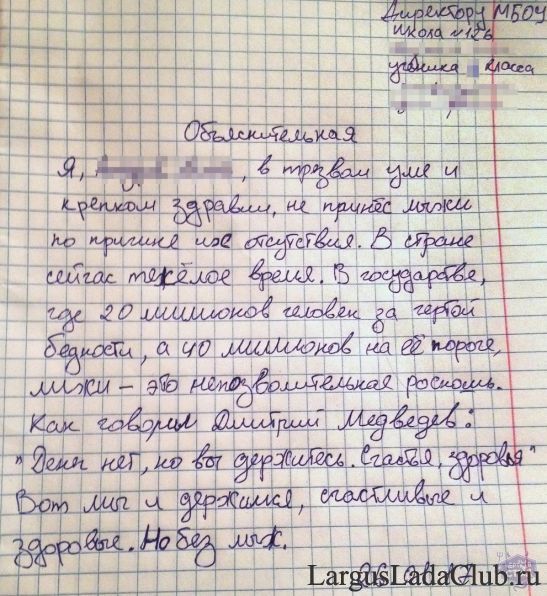 Директору МБОУ
школа №126
ученика класса
Объяснительная
Я, , в трезвом уме и
крепком здравии, не принёс лыжи
по причине их отсутствия. В стране
сейчас тяжёлое время. В государстве,
где 20 миллионов человек за чертой
бедности, а 40 миллионов на её пороге,
лыжи – это непозволительная роскошь.
Как говорил Дмитрий Медведев:
"Денег нет, но вы держитесь. Счастья, здоровья"
Вот мы и держимся, счастливые и
здоровые. Но без лыж.
LargusLadaClub.ru